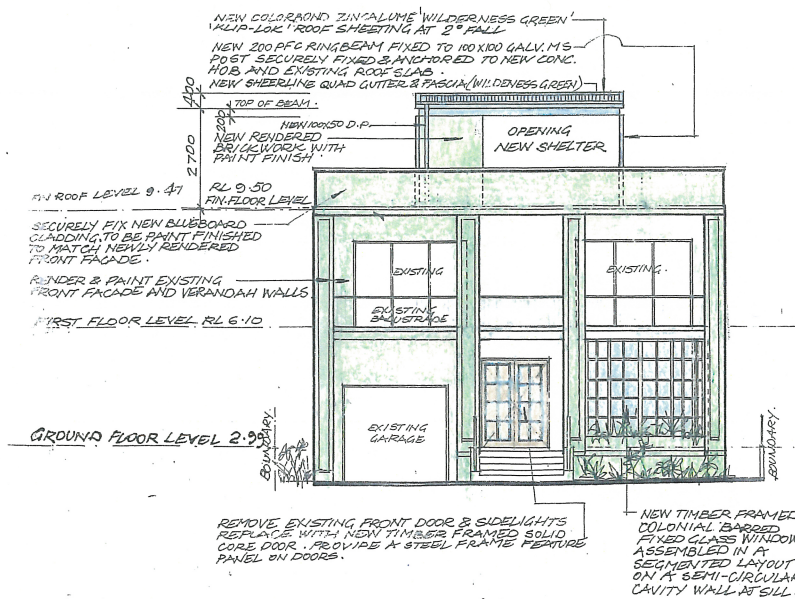 NEW COLORBOND ZINCALUME 'WILDERNESS GREEN'
'KLIP-LOK' ROOF SHEETING AT 2° FALL
NEW 200 PFC RINGBEAM FIXED TO 100X100 GALV. M.S
POST SECURELY FIXED & ANCHORED TO NEW CONC.
HOB AND EXISTING ROOF SLAB.
NEW SHEERLINE QUAD GUTTER & FASCIA (WILDENESS GREEN)
400
TOP OF BEAM.
200
NEW 100X50 D.P.
2700
NEW RENDERED
BRICKWORK WITH
PAINT FINISH.
OPENING
NEW SHELTER
FIN ROOF LEVEL 9.47
RL 9.50
FIN. FLOOR LEVEL
SECURELY FIX NEW BLUEBOARD
CLADDING, TO BE PAINT FINISHED
TO MATCH NEWLY RENDERED
FRONT FACADE.
RENDER & PAINT EXISTING
FRONT FACADE AND VERANDAH WALLS
EXISTING
EXISTING.
EXISTING
BALUSTRADE
FIRST FLOOR LEVEL RL 6.10
EXISTING
GARAGE
GROUND FLOOR LEVEL 2.99
BOUNDARY.
BOUNDARY.
REMOVE EXISTING FRONT DOOR & SIDELIGHTS
REPLACE WITH NEW TIMBER FRAMED SOLID
CORE DOOR. PROVIDE A STEEL FRAME FEATURE
PANEL ON DOORS.
NEW TIMBER FRAMED
COLONIAL BARRED
FIXED GLASS WINDOW
ASSEMBLED IN A
SEGMENTED LAYOUT
ON A SEMI-CIRCULAR
CAVITY WALL AT SILL